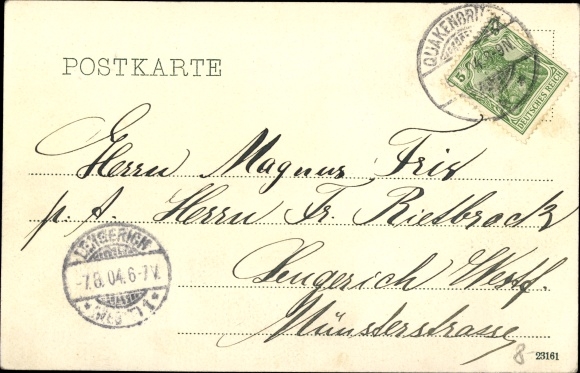 POSTKARTE
QUAKENBRÜ
5
DEUTSCHES REICH
Herrn Magnus Fris
p. A. Herrn Fr. Rietbrock
Lengerich Westf.
Münsterstrasse
LENGERICH
-7.8.04.6-7V.
8
23161